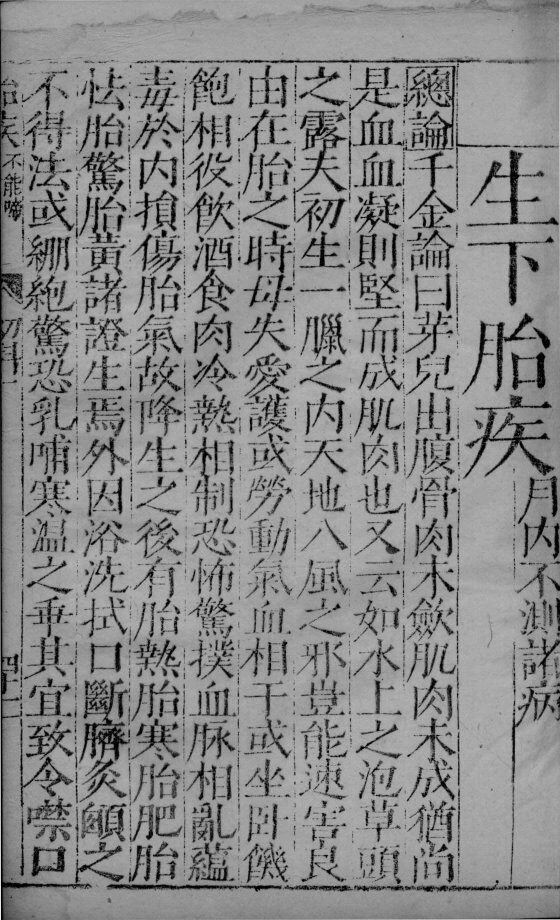 生下胎疾 月内不測諸病
總論千金論曰芽兒出腹骨肉未歛肌肉未成猶尚
是血血凝則堅而成肌肉也又云如水上之泡草頭
之露夫初生一臘之内天地八風之邪豈能速害良
由在胎之時母失愛護或勞動氣血相干或坐卧饑
飽相役飲酒食肉冷熱相制恐怖驚撲血脉相亂蘊
毒於内損傷胎氣故降生之後有胎熱胎寒胎肥胎
怯胎驚胎黃諸證生焉外因浴洗拭口斷臍灸䪿之
不得法或綳絁驚恐乳哺寒温之乖其宜致令噤口
胎疾 不能啼 幼科一